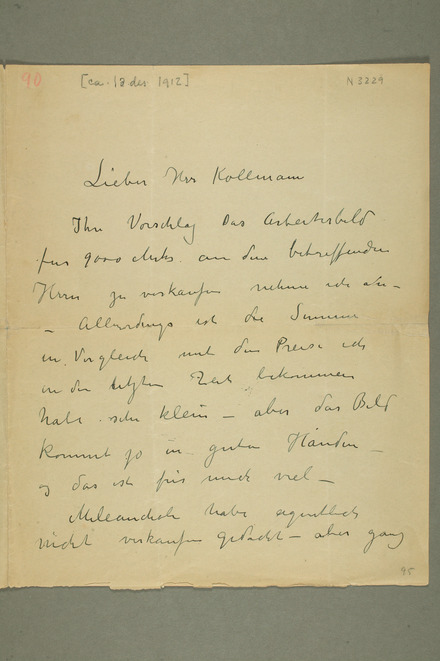 90 [ca. 13 des 1912] N 3229
Lieber Herr Kollmann
Ihr Vorschlag das Arbeiterbild
für 9000 Mark an den betreffenden
Herrn zu verkaufen nehme ich an –
– Allerdings ist die Summe
im Vergleich mit den Preise ich
in der letzten Zeit bekommen
habe sehr klein – aber das Bild
kommt jo in guten Händen –
og das ist für mich viel –
habe eigentlich
nicht verkaufen gedacht – aber ganz
95